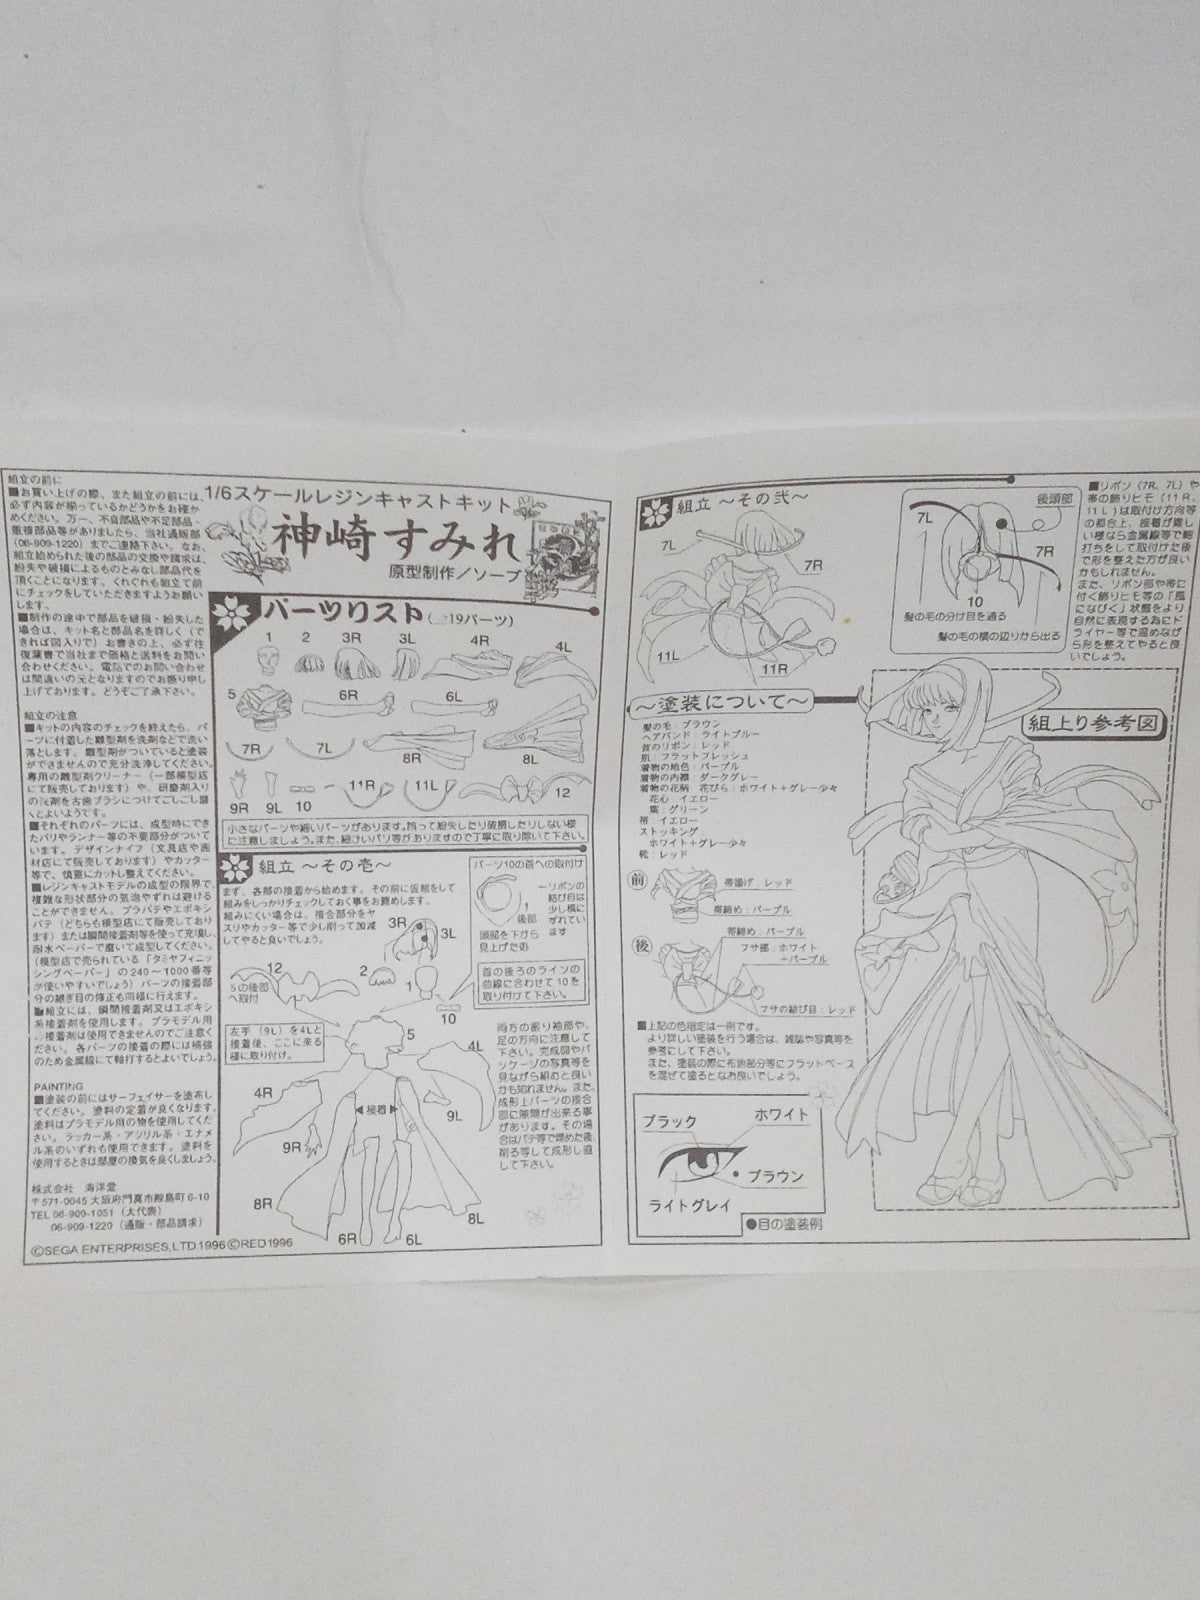 組立の前に
■お買い上げの際、また組立の前には、
必ず内容が揃っているかどうかをお確か
めください。万一、不良部品や不足部品・
重複部品等がありましたら、当社通販部
(06-909-1220)までご連絡下さい。なお、
組立始められた後の部品の交換や請求は、
紛失や破損によるものとみなし部品代を
頂くことになります。くれぐれも組立て前
にチェックをしていただきますようお願い
します。
■制作の途中で部品を破損・紛失した
場合は、キット名と部品名を詳しく(で
きれば図入りで)お書きの上、必ず往
復葉書で当社まで価格と送料をお問い
合わせください。電話でのお問い合わせ
は間違いの元となりますのでお断り申し
上げております。どうぞご了承下さい。
組立の注意
■キットの内容のチェックを終えたら、パ
ーツに付着した離型剤を洗剤などで洗い
落とします。離型剤がついていると塗装
ができませんので充分洗浄してください。
専用の離型剤クリーナー(一部模型店
にて販売しております)や、研磨剤入り
の洗剤を古歯ブラシにつけてごしごし磨
くとよいようです。
■それぞれのパーツには、成型時にでき
たバリやランナー等の不要部分がついて
います。デザインナイフ(文具店や画
材店にて販売しております)やカッター
等で、慎重にカットし整えてください。
■レジンキャストモデルの成型の限界で、
複雑な形状部分の気泡やずれは避ける
ことができません。プラパテやエポキシ
パテ(どちらも模型店にて販売しており
ます)または瞬間接着剤等を使って充填し、
耐水ペーパーで磨いて成型してください。
(模型店で売られている「タミヤフィニッ
シングペーパー」の240〜1000番等
が使いやすいでしょう)パーツの接着部
分の継ぎ目の修正も同様に行えます。
■組立には、瞬間接着剤又はエポキシ
系接着剤を使用します。プラモデル用
接着剤は使用できませんのでご注意く
ださい。各パーツの接着の際には補強
のため金属線にて軸打するとよいでしょう。
PAINTING
■塗装の前にはサーフェイサーを塗布し
てください。塗料の定着が良くなります。
塗料はプラモデル用の物を使用してくだ
さい。ラッカー系・アクリル系・エナメ
ル系のいずれも使用できます。塗料を
使用するときは部屋の換気を良くしましょう。
株式会社 海洋堂
〒571-0045 大阪府門真市殿島町6-10
TEL 06-909-1051(大代表)
06-909-1220(通販・部品請求)
©SEGA ENTERPRISES,LTD 1996 ©RED1996
1/6スケールレジンキャストキット
神崎すみれ
原型制作/ソープ
パーツリスト(19パーツ)
1 2 3R 3L 4R 4L
5 6R 6L
7R 7L 8R 8L
9R 9L 10 11R 11L 12
小さなパーツや細いパーツがあります。誤って紛失したり破損したりしない様
に注意しましょう。また、細かいバリ等がありますので丁寧に取り除いて下さい。
組立 〜その壱〜
まず、各部の接着から始めます。その前に仮組をして
組みをしっかりチェックしておく事をお薦めします。
組みにくい場合は、複合部分をヤ
スリやカッター等で少し削って加減
してやると良いでしょう。
3R
3L
12
5の後部
へ取付
2
1
10
パーツ10の首への取付け
1
後部
頭部を下から
見上げた処
リボンの
結び目は
少し横に
ずれてい
ます
首の後ろのラインの
曲線に合わせて10を
取り付けて下さい。
左手(9L)を4Lと
接着後、ここに来る
様に取り付け。
5
4L
4R
接着
9L
9R
8R
8L
6R
6L
両方の振り袖部や、
足の方向に注意して
下さい。完成図やパ
ッケージの写真等を
見ながら組むと良い
かも知れません。また、
成形上パーツの接合
部に隙間が出来る事
があります。その場
合はパテ等で埋めた後
削る等して成形し直
して下さい。
組立 〜その弐〜
7L
7R
11L
11R
後頭部
7L
7R
10
髪の毛の分け目を通る
髪の毛の横の辺りから出る
■リボン(7R、7L)や
帯の飾りヒモ(11R、
11L)は取付け方向等
の都合上、接着が難し
い様なら金属線等で軸
打ちをして取付けた後
で形を整えた方が良い
かもしれません。
また、リボン部や帯に
付く飾りヒモ等の「風
になびく」状態をより
自然に表現する為にド
ライヤー等で温めなが
ら形を整えてやると良
いでしょう。
〜塗装について〜
髪の毛:ブラウン
ヘアバンド:ライトブルー
首のリボン:レッド
肌:フラットフレッシュ
着物の地色:パープル
着物の内襟 ダークグレー
着物の花柄 花びら:ホワイト+グレー少々
花心 イエロー
葉:グリーン
帯:イエロー
ストッキング
ホワイト+グレー少々
靴:レッド
前
帯揚げ:レッド
帯締め:パープル
後
帯締め:パープル
フサ部:ホワイト
+パープル
フサの結び目:レッド
■上記の色指定は一例です。
より詳しい塗装を行う場合は、雑誌や写真等を
参考にして下さい。
また、塗装の際に布地部分等にフラットベース
を混ぜて塗るとなお良いでしょう。
ブラック
ホワイト
ブラウン
ライトグレイ
●目の塗装例
組上り参考図